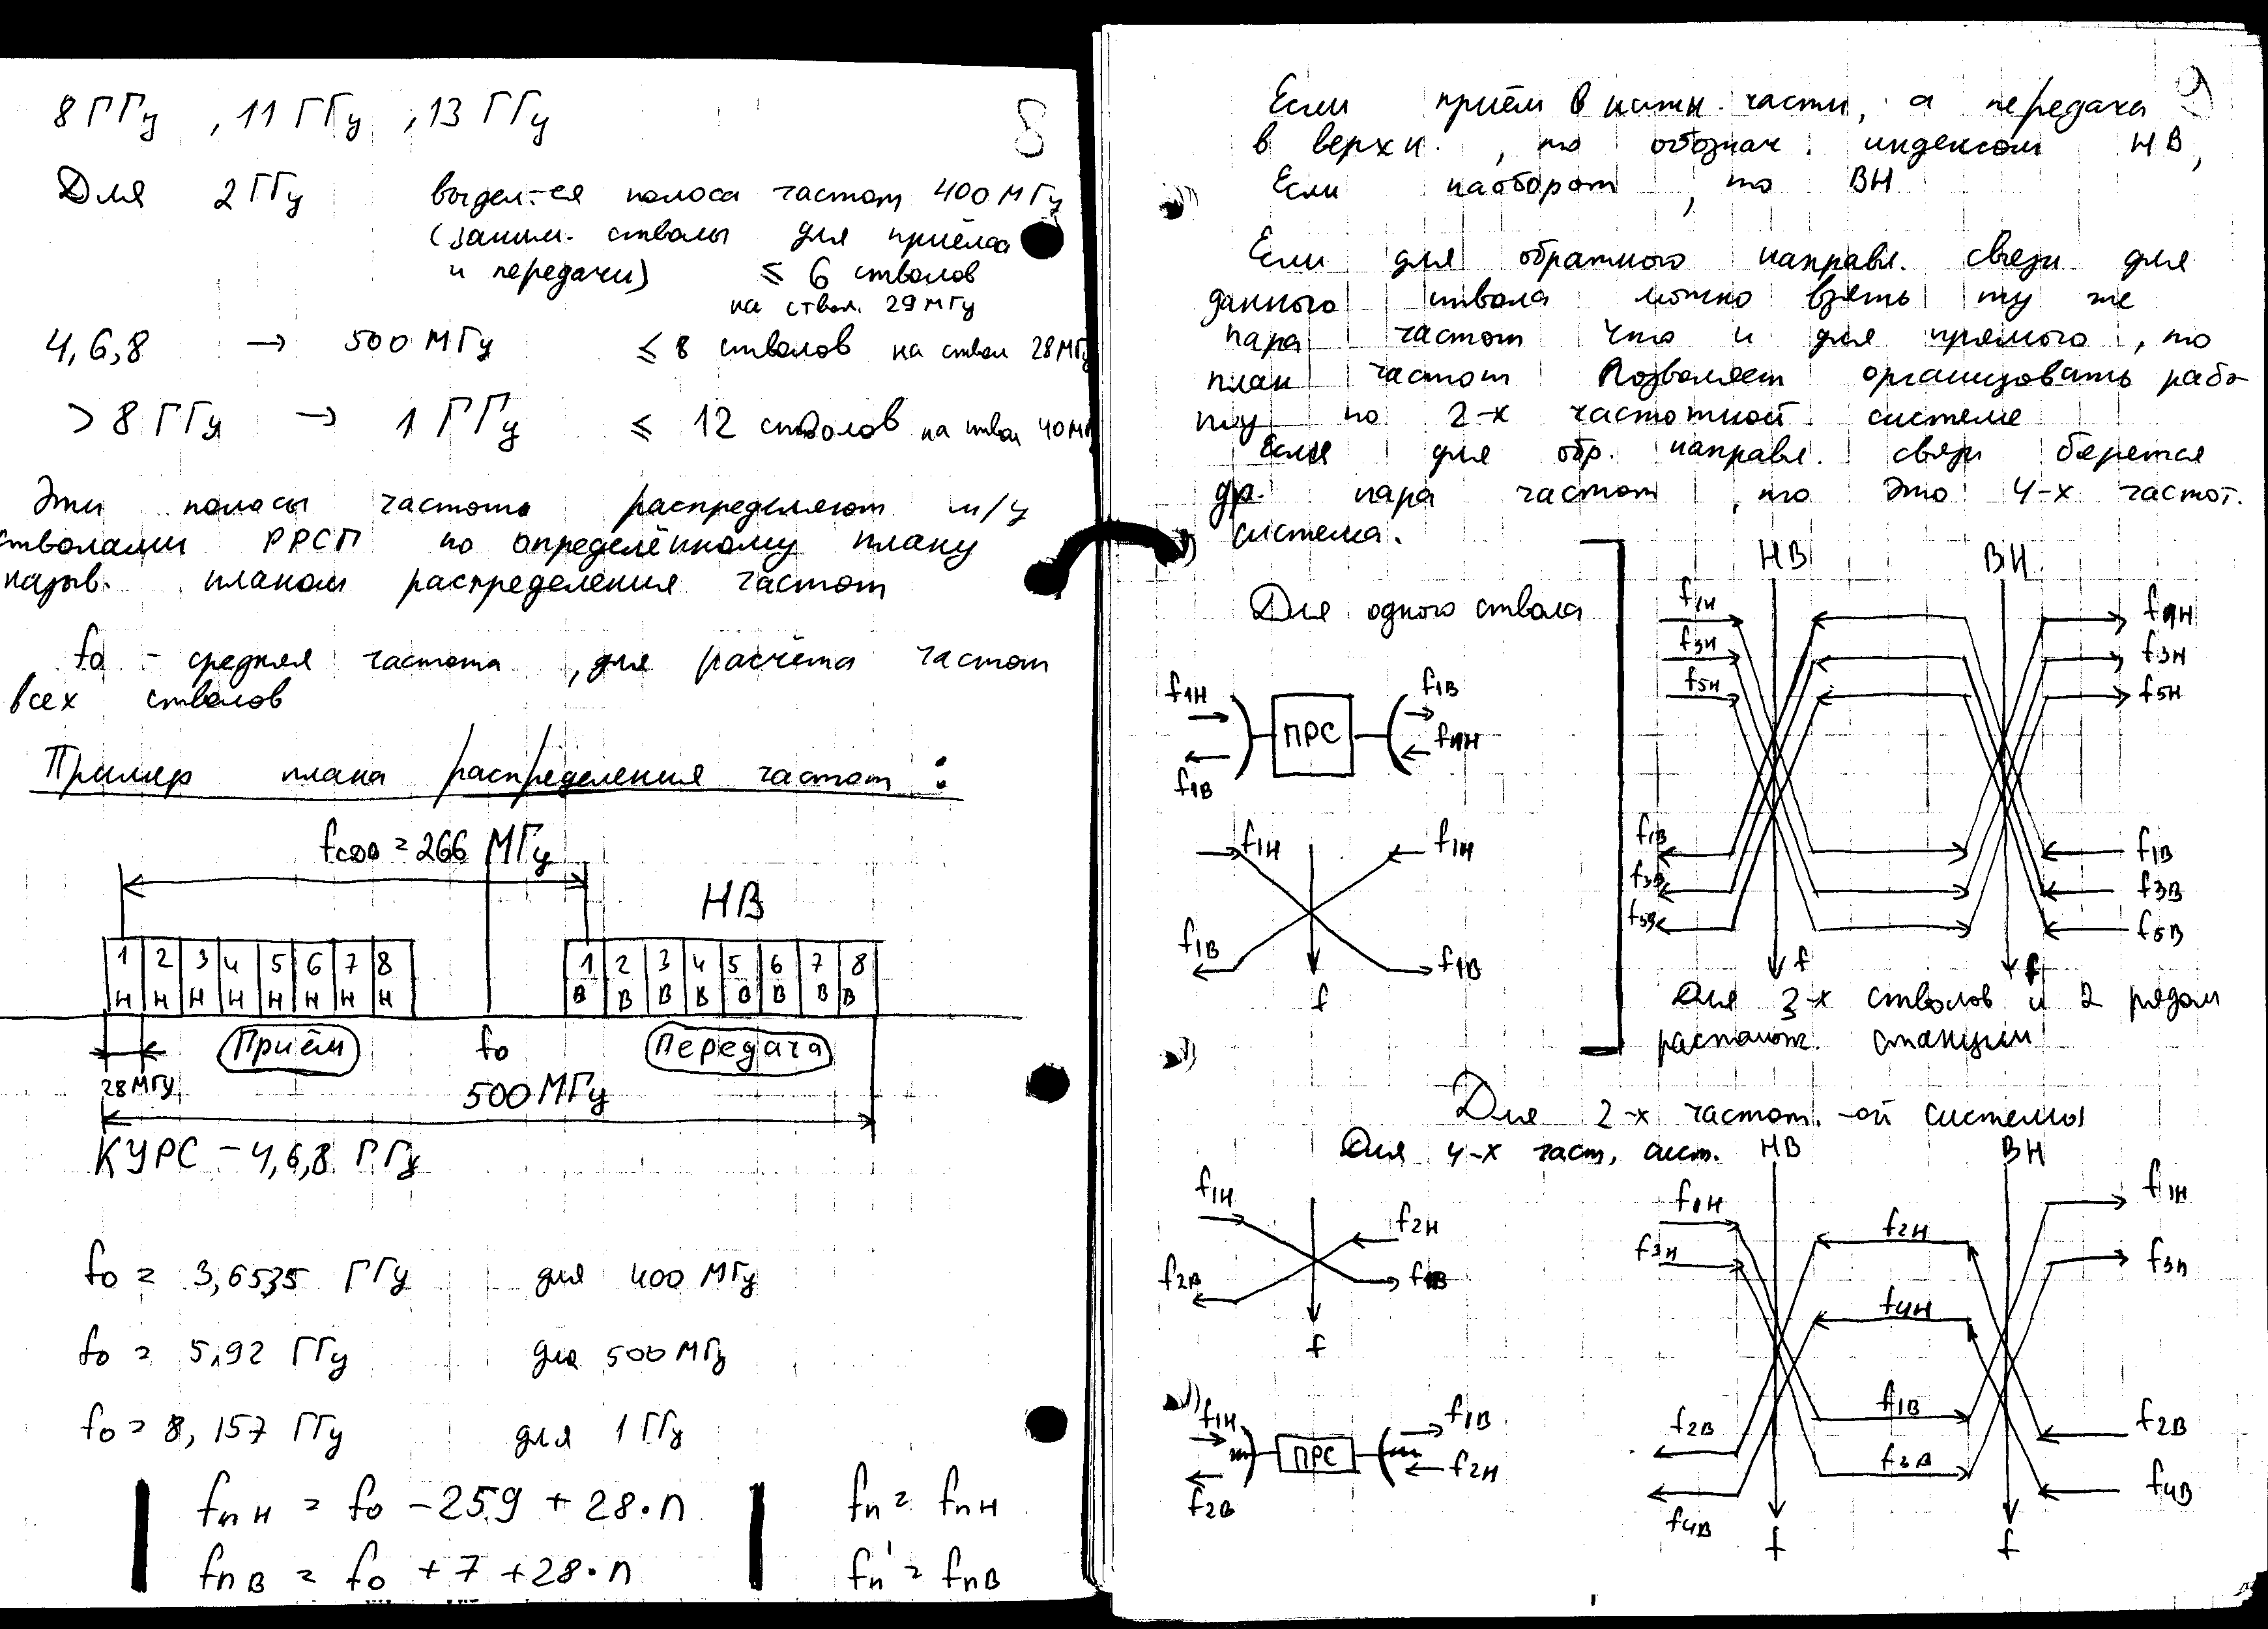 8 ГГц , 11 ГГц , 13 ГГц
8
Для 2 ГГц выдел-ся полоса частот 400 МГц
(заним. стволы для приёма
и передачи) ≤ 6 стволов
на ствол. 29 МГц
4,6,8 → 500 МГц ≤ 8 стволов на ствол 28 МГц
> 8 ГГц → 1 ГГц ≤ 12 стволов на ствол 40 МГ
Эти полосы частот распределяют м/у
стволами РРСП по определённому плану
назыв. планом распределения частот
f0 - средняя частота , для расчёта частот
всех стволов
Пример плана распределения частот :
fсдв = 266 МГц
НВ
1 2 3 4 5 6 7 8
Н Н Н Н Н Н Н Н
1 2 3 4 5 6 7 8
В В В В В В В В
Приём f0 Передача
28 МГц
500 МГц
КУРС - 4,6,8 ГГц
f0 = 3,6535 ГГц для 400 МГц
f0 = 5,92 ГГц для 500 МГц
f0 = 8,157 ГГц для 1 ГГц
fnН = f0 - 259 + 28·n fn = fnН
fnВ = f0 + 7 + 28·n fn' = fnВ
9
Если приём в нижн. части, а передача
в верхн. , то обознач. индексом НВ,
Если наоборот , то ВН
Если для обратного направл. связи для
данного ствола можно взять ту же
пара частот что и для прямого , то
план частот позволяет организовать рабо-
ту по 2-х частотной системе
Если для обр. направл. связи берется
др. пара частот , то это 4-х частот.
система.
Для одного ствола
f1Н f1В
ПРС
f1В f1Н
f1Н f1Н
f1В f1В
f
НВ ВН
f1Н f1Н
f3Н f3Н
f5Н f5Н
f1В f1В
f3В f3В
f5В f5В
f f
Для 3-х стволов и 2 рядом
располож. станции
Для 2-х частот.-ой системы
Для 4-х част. сист.
f1Н f2Н
f2В f1В
f
f1Н f1В
ПРС
f2В f2Н
НВ ВН
f1Н f2Н f1Н
f3Н f4Н f3Н
f2В f1В f2В
f4В f3В f4В
f f